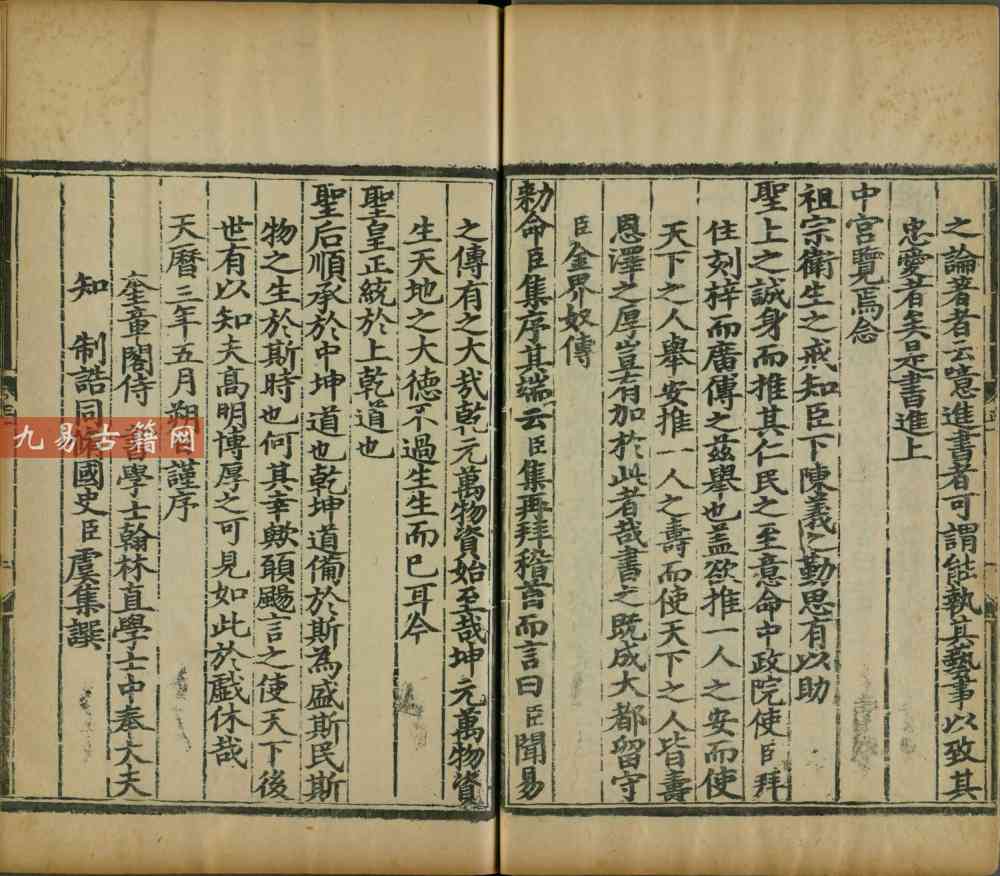 之論著者云噫進書者可謂能執其藝事以致其
忠愛者矣是書進上
中宮覽焉念
祖宗衛生之戒知臣下陳義之勤思有以助
聖上之誠身而推其仁民之至意命中政院使臣拜
住刻梓而廣傳之茲舉也蓋欲推一人之安而使
天下之人舉安推一人之壽而使天下之人皆壽
恩澤之厚豈有加於此者哉書之既成大都留守
臣金界奴傳
勑命臣集序其端云臣集再拜稽首而言曰臣聞易
之傳有之大哉乾元萬物資始至哉坤元萬物資
生天地之大德不過生生而已耳今
聖皇正統於上乾道也
聖后順承於中坤道也乾坤道備於斯為盛斯民斯
物之生於斯時也何其幸歟願颺言之使天下後
世有以知夫高明博厚之可見如此於戲休哉
天曆三年五月朔日謹序
奎章閣侍書學士翰林直學士中奉大夫
知制誥同脩國史臣虞集譔
九易古籍网